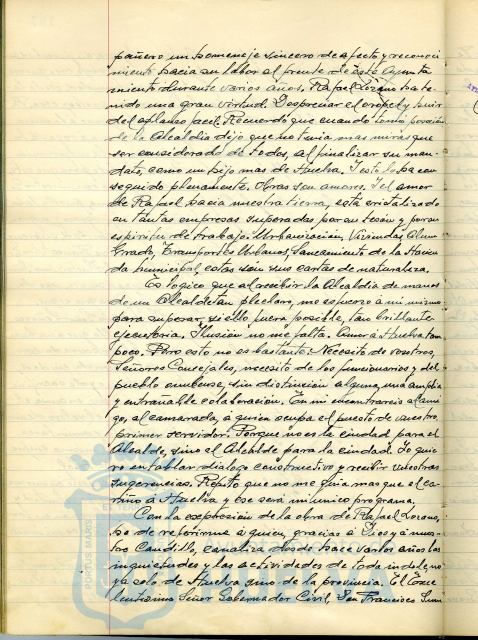 pañero un homenaje sincero de afecto y reconoci
miento hacia su labor al frente de este Ayunta
miento durante varios años. Rafael Lozano ha te
nido una gran virtud. Despreciar el oropel y huir
del aplauso facil. Recuerdo que cuando tomó posesión
de la Alcaldia dijo que no tenia mas miras que
ser considerado de todos, al finalizar su man-
dato, como un hijo mas de Huelva. Y esto lo ha con
seguido plenamente. Obras son amores. Y el amor
de Rafael hacia nuestra tierra, está cristalizado
en tantas empresas superadas por su tesón y por su
espiritu de trabajo: Urbanización, Viviendas, Alum
brado, Transportes Urbanos, Saneamiento de la Hacien
da municipal, estas son sus cartas de naturaleza.
Es logico que al recibir la Alcaldia de manos
de un Alcalde tan preclaro, me esfuerzo á mi mismo
para superar, si ello fuera posible, tan brillante
ejecutoria. Ilusión no me falta. Amor á Huelva tam
poco. Pero esto no es bastante. Necesito de vosotros,
Señores Concejales, necesito de los funcionarios y del
pueblo onubense, sin distinción alguna, una amplia
y entrañable colaboración. En mi encontrareis al ami
go, al camarada, á quien ocupa el puesto de vuestro
primer servidor. Porque no está la ciudad para el
Alcalde, sino el Alcalde para la ciudad. Yo quie
ro entablar dialogo constructivo y recibir vuestras
sugerencias. Repito que no me guia mas que el ca-
riño á Huelva y ese será mi unico programa.
Con la expresión de la obra de Rafael Lozano,
he de referirme á quien, gracias á Dios y á nues-
tro Caudillo, canaliza desde hace varios años las
inquietudes y las actividades de toda indole, no
ya solo de Huelva sino de la provincia. El Exce
lentisimo Señor Gobernador Civil, Don Francisco
PORTUS MARIS